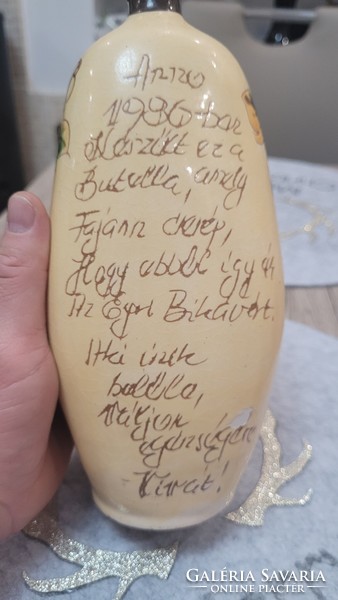 Anno
1986-ban
Készült ez a
Butella, amely
Fajansz cserép,
Hogy ebből így
Az Egri Bikavért.
Aki iszik
belőle,
Váljon
egészségére
Vivát!
GALÉRIA SAVARIA
ONLINE PIACTÉR